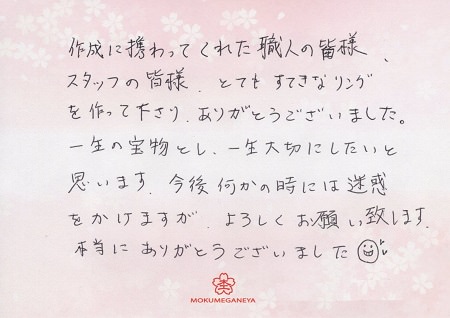 作成に携わってくれた職人の皆様、
スタッフの皆様、とてもすてきなリング
を作って下さり、ありがとうございました。
一生の宝物とし、一生大切にしたいと
思います、今後何かの時には迷惑
をかけますが、よろしくお願い致します、
本当にありがとうございました
MOKUMEGANEYA